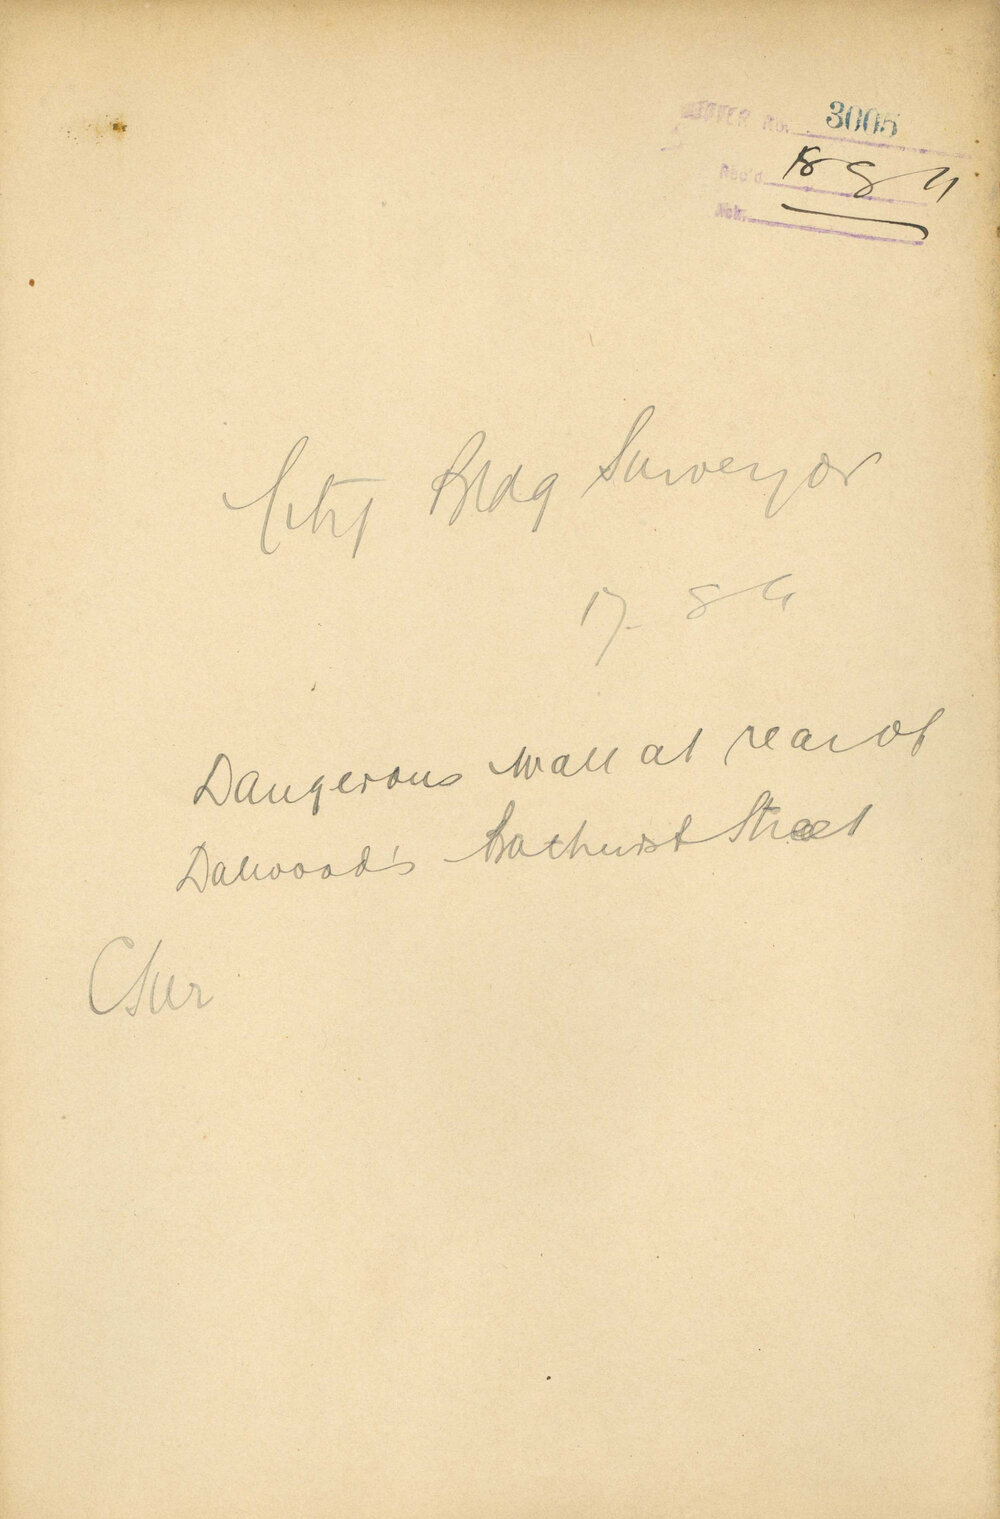 No. 3005
Rec'd 18 8 11
City Bldg Surveyor
17. 8 11
Dangerous wall at rear of
Dallwood's Bathurst Street